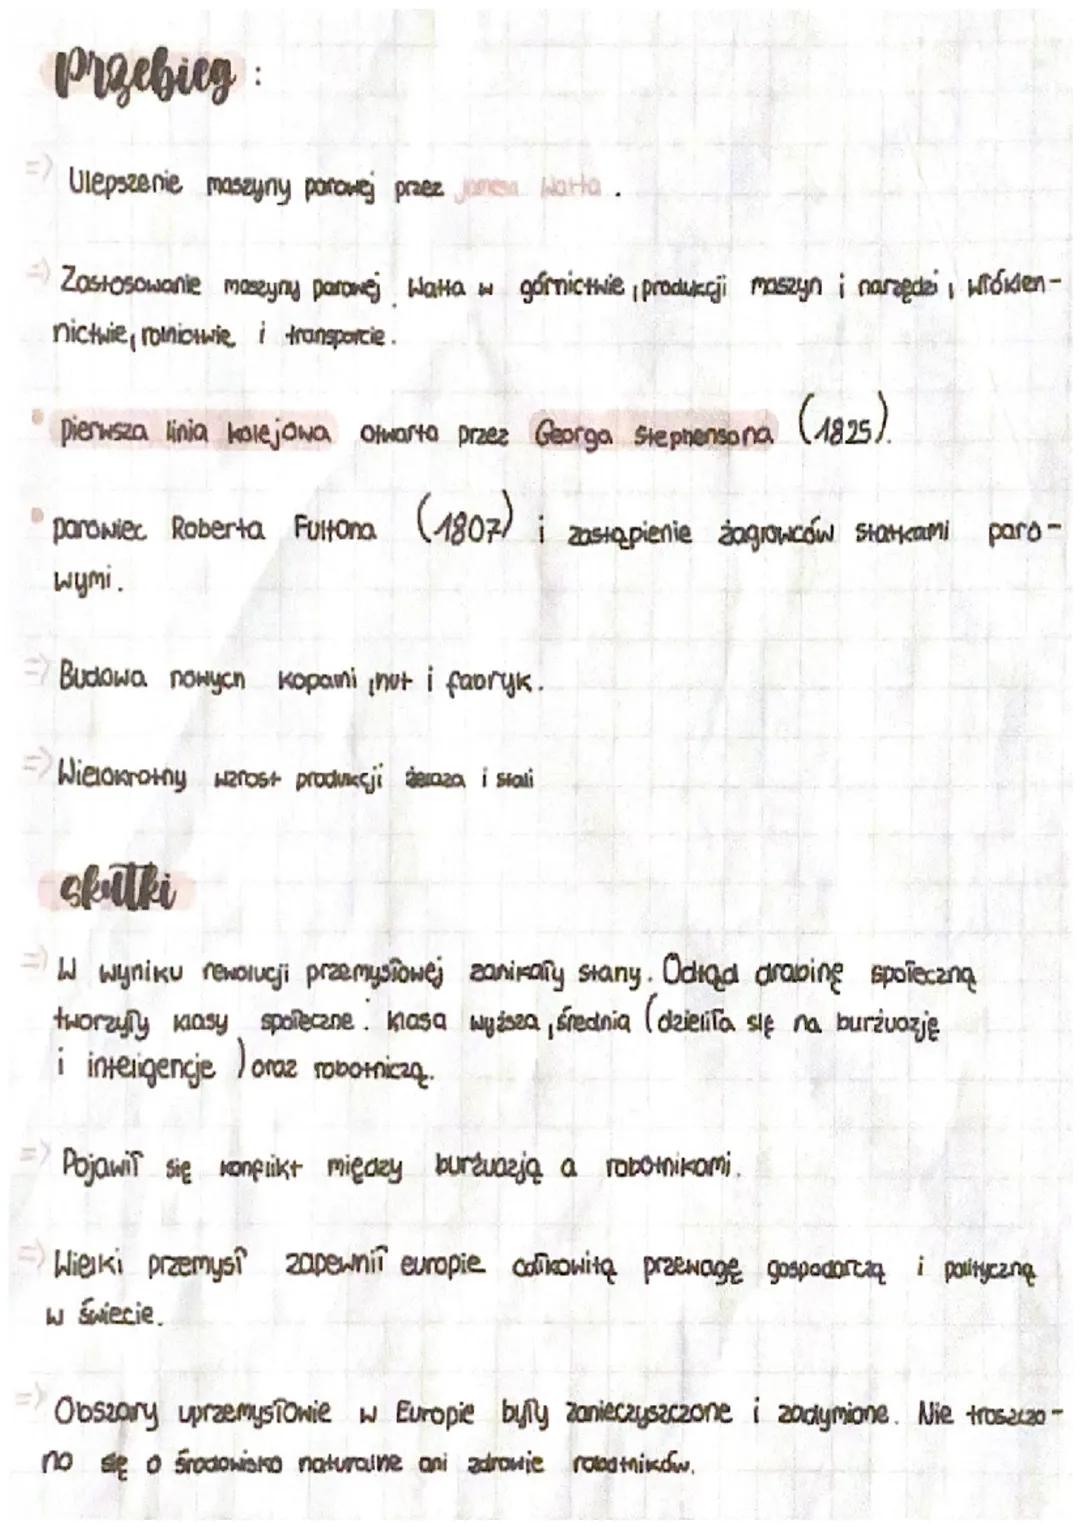 Przebieg :
=> Ulepszenie maszyny parowej przez Jamesa Watta .
=> Zastosowanie maszyny parowej Watta w górnictwie, produkcji maszyn i narzędzi, włókien-
nictwie, rolnictwie i transporcie.
• pierwsza linia kolejowa otwarta przez Georga Stephensona (1825).
• parowiec Roberta Fultona (1807) i zastąpienie żagrowców statkami paro-
wymi.
=> Budowa nowych kopalni, hut i fabryk.
=> Wielokrotny wzrost produkcji żelaza i stali
skutki
=> W wyniku rewolucji przemysłowej zanikały stany. Odtąd drabinę społeczną
tworzyły klasy społeczne. klasa wyższa, średnia (dzieliła się na burżuazję
i inteligencje) oraz robotniczą.
=> Pojawił się konflikt między burżuazją a robotnikami.
=> Wielki przemysł zapewnił europie całkowitą przewagę gospodarczą i polityczną
w świecie.
=> Obszary uprzemysłowie w Europie były zanieczyszczone i zadymione. Nie troszczo-
no się o środowisko naturalne ani zdrowie robotników.